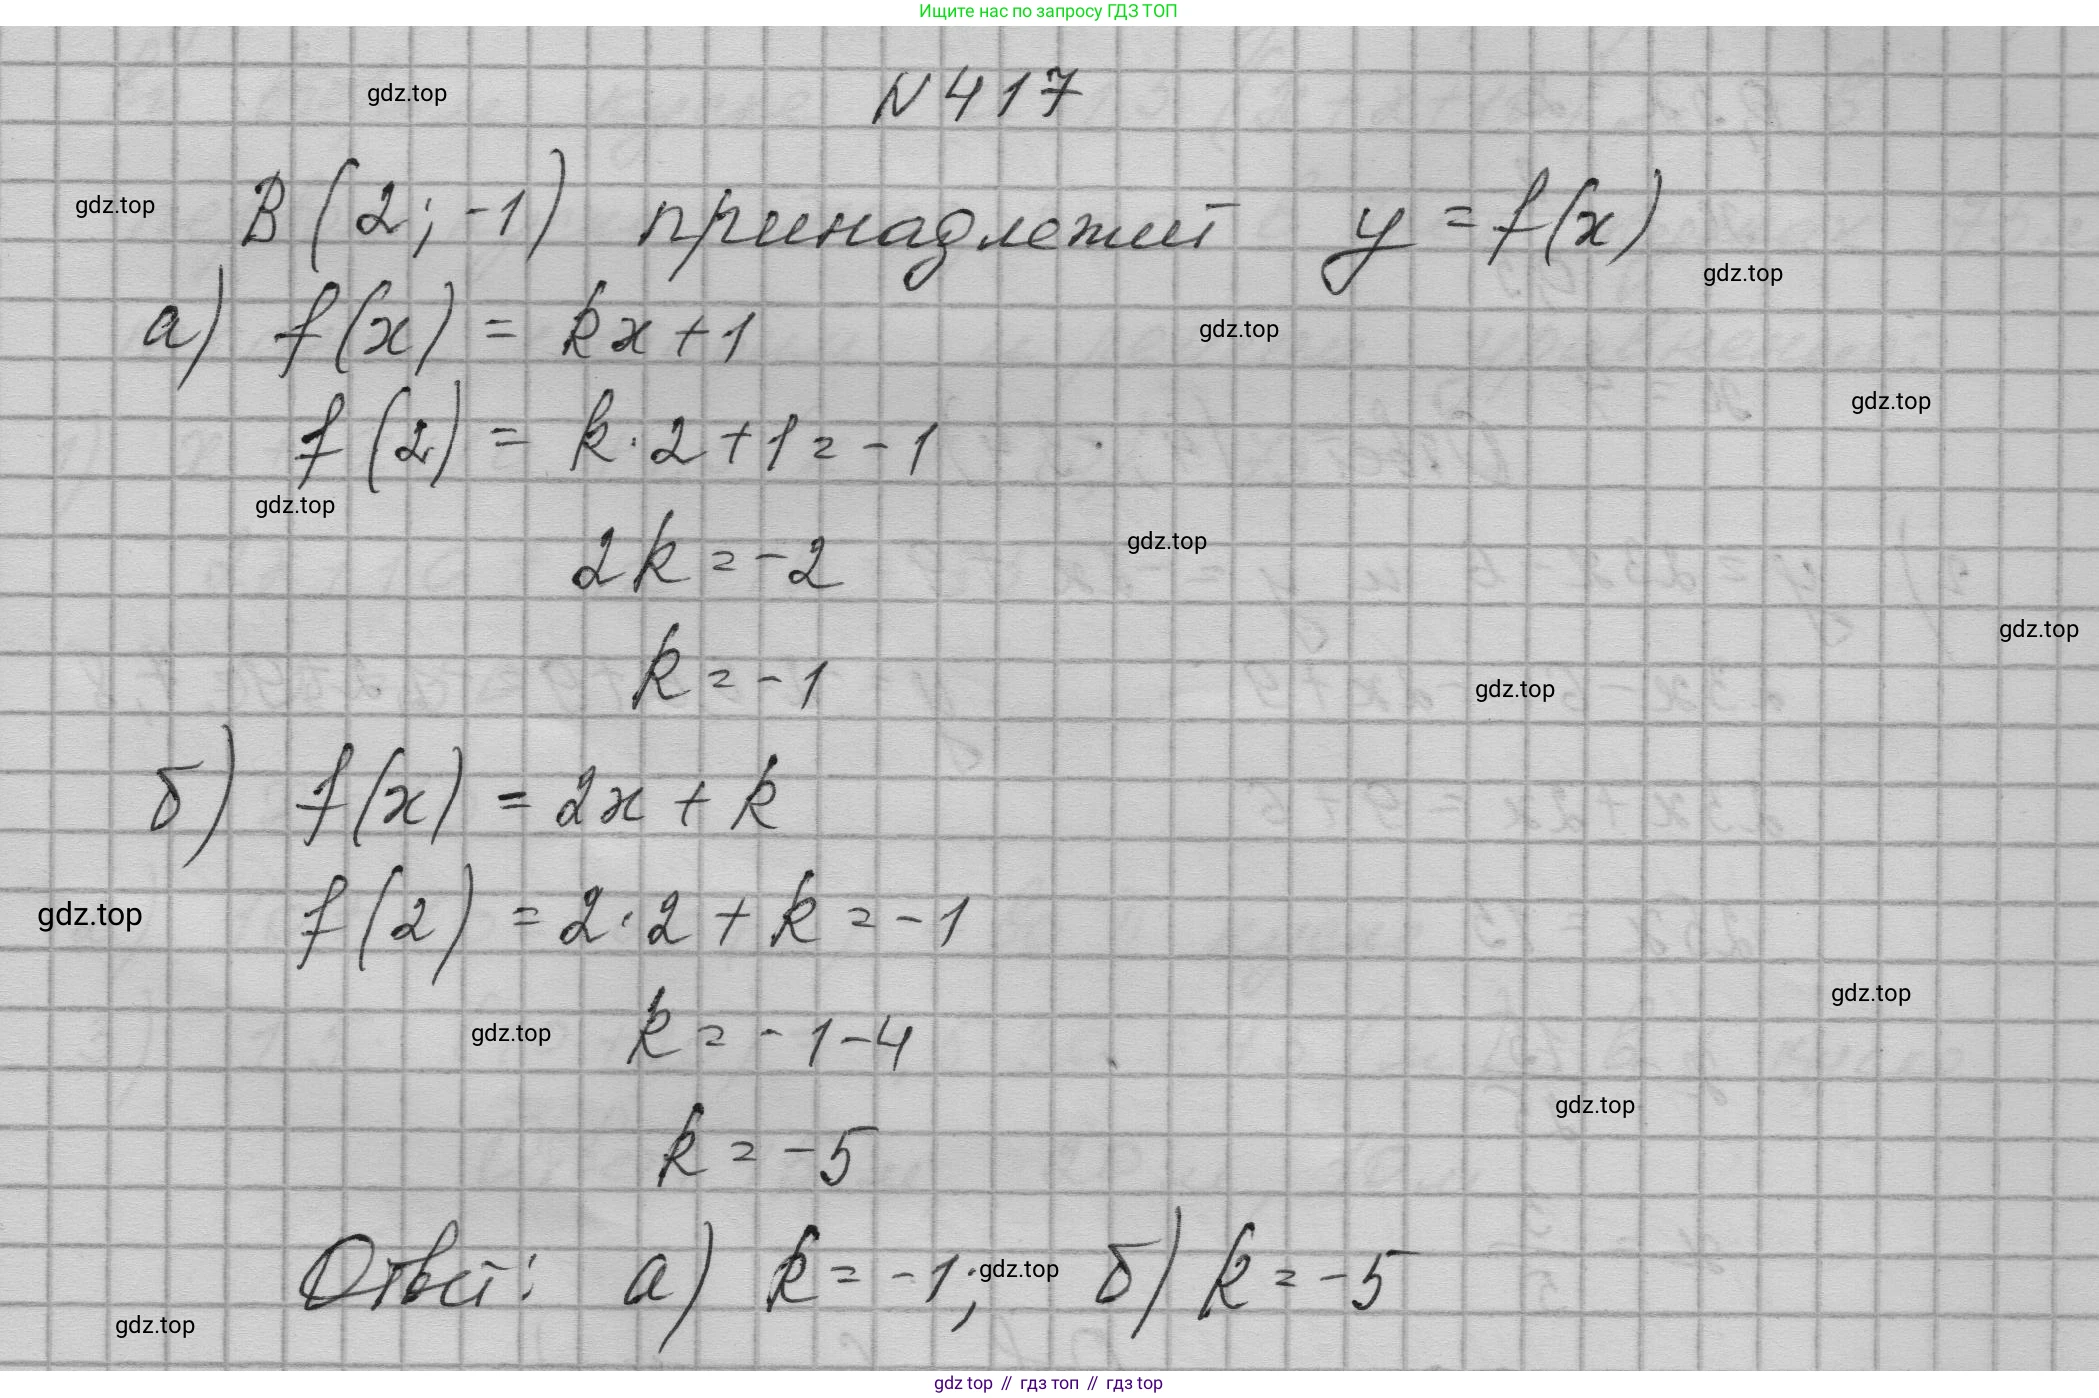 Ищите нас по запросу ГДЗ ТОП
N 417
gdz.top
B(2; -1) принадлежит y = f(x)
gdz.top
gdz.top
а) f(x) = kx + 1
gdz.top
gdz.top
f(2) = k · 2 + 1 = -1
gdz.top
gdz.top
2k = -2
gdz.top
k = -1
gdz.top
б) f(x) = 2x + k
gdz.top
f(2) = 2 · 2 + k = -1
gdz.top
k = -1 - 4
gdz.top
gdz.top
k = -5
Ответ: а) k = -1; б) k = -5
gdz.top
gdz.top
gdz top // гдз топ // gdz.top